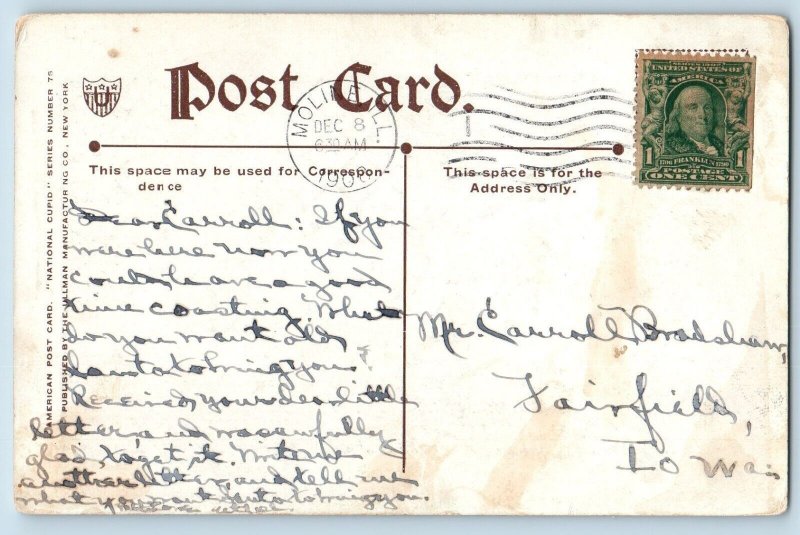 Post Card.
MOLINE, ILL.
DEC 8
630 AM
190
UNITED STATES OF
AMERICA
1 FRANKLIN 1
POSTAGE
ONE CENT
This space may be used for Correspon-
dence
This space is for the
Address Only.
AMERICAN POST CARD. "NATIONAL CUPID" SERIES NUMBER 75
PUBLISHED BY THE ULLMAN MANUFACTURING CO., NEW YORK
Dear Carroll: If you
were here now you
could have a good
time coasting. What
do you want old
Santa to bring you.
Received your dear little
letter and was awfully
glad to get it. Write
another letter and tell me
what you want Santa to bring you.
Mr. Carroll Bradshaw,
Fairfield,
Iowa.